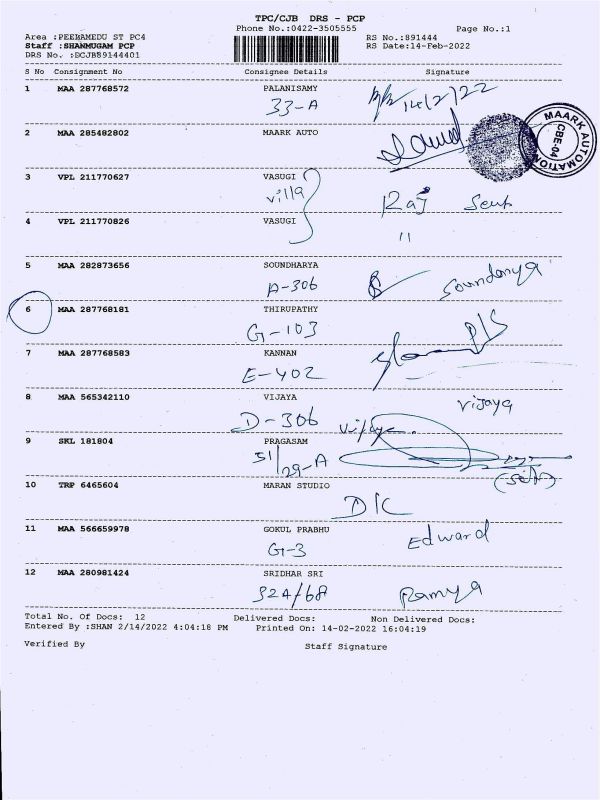 TPC/CJB DRS - PCP
Phone No.:0422-3505555 Page No.:1
Area :PEELAMEDU ST PC4 RS No.:891444
Staff :SHANMUGAM PCP RS Date:14-Feb-2022
DRS No. :DCJB89144401
S No Consignment No Consignee Details Signature
1 MAA 287768572 PALANISAMY
33-A 14/2/22
2 MAA 285482802 MAARK AUTO
MAARK AUTOMATION
CBE-04
3 VPL 211770627 VASUGI
villa Raj
4 VPL 211770826 VASUGI
11
5 MAA 282873656 SOUNDHARYA
A-306 Soundarya
6 MAA 287768181 THIRUPATHY
G-103
7 MAA 287768583 KANNAN
E-402
8 MAA 565342110 VIJAYA
D-306 Vijaya Vijaya
9 SKL 181804 PRAGASAM
51/29-A
10 TRP 6465604 MARAN STUDIO
11 MAA 566659978 GOKUL PRABHU
G-3 Edward
12 MAA 280981424 SRIDHAR SRI
324/68 Ramya
Total No. Of Docs: 12 Delivered Docs: Non Delivered Docs:
Entered By :SHAN 2/14/2022 4:04:18 PM Printed On: 14-02-2022 16:04:19
Verified By Staff Signature